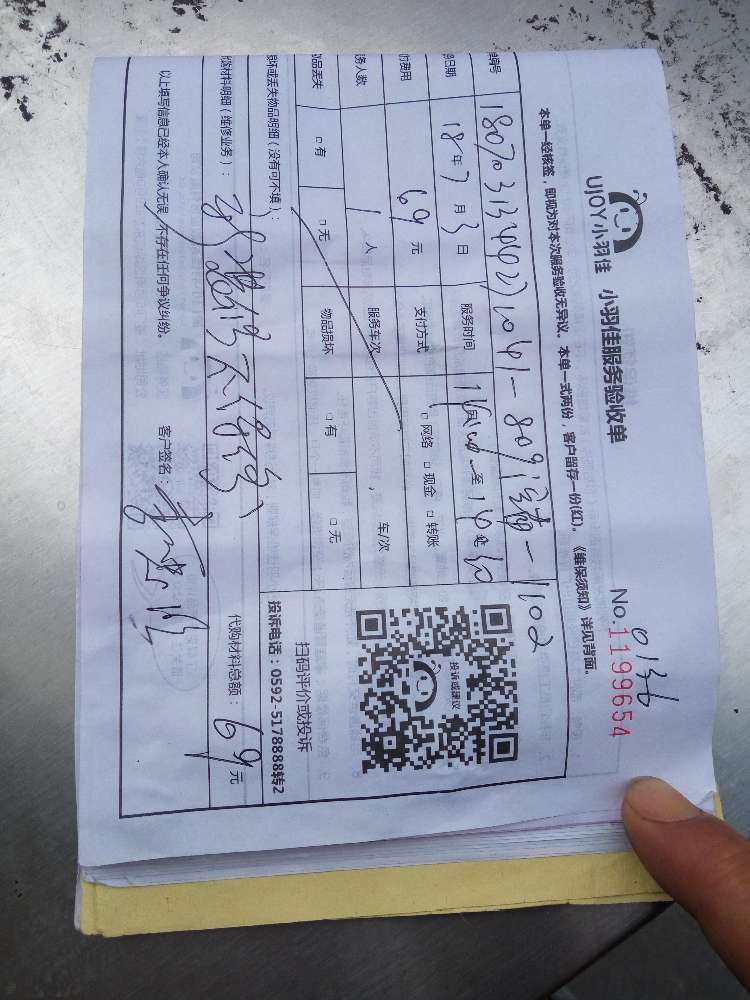 UJOY小羽佳
小羽佳服务验收单
No.1199654
0136
本单一经核签，即视为对本次服务验收无异议。本单一式两份，客户留存一份(红)。《维保须知》详见背面。
单编号
务日期 18年7月3日 服务时间 至
务费用 69元 支付方式 □网络 □现金 □转账
务人数 1人 服务车次 车/次
物品丢失 □有 □无 物品损坏 □有 □无
投诉或建议
扫码评价或投诉
投诉电话：0592-5178888转2
损坏或丢失物品明细（没有可不填）：
代购材料明细（维修业务）：
代购材料总额：69元
以上填写信息已经本人确认无误，不存在任何争议纠纷。
客户签名：